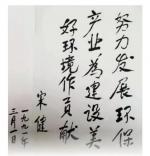 努力发展环保
产业为建设美
好环境作贡献
宋健
一九九一年
三月一日